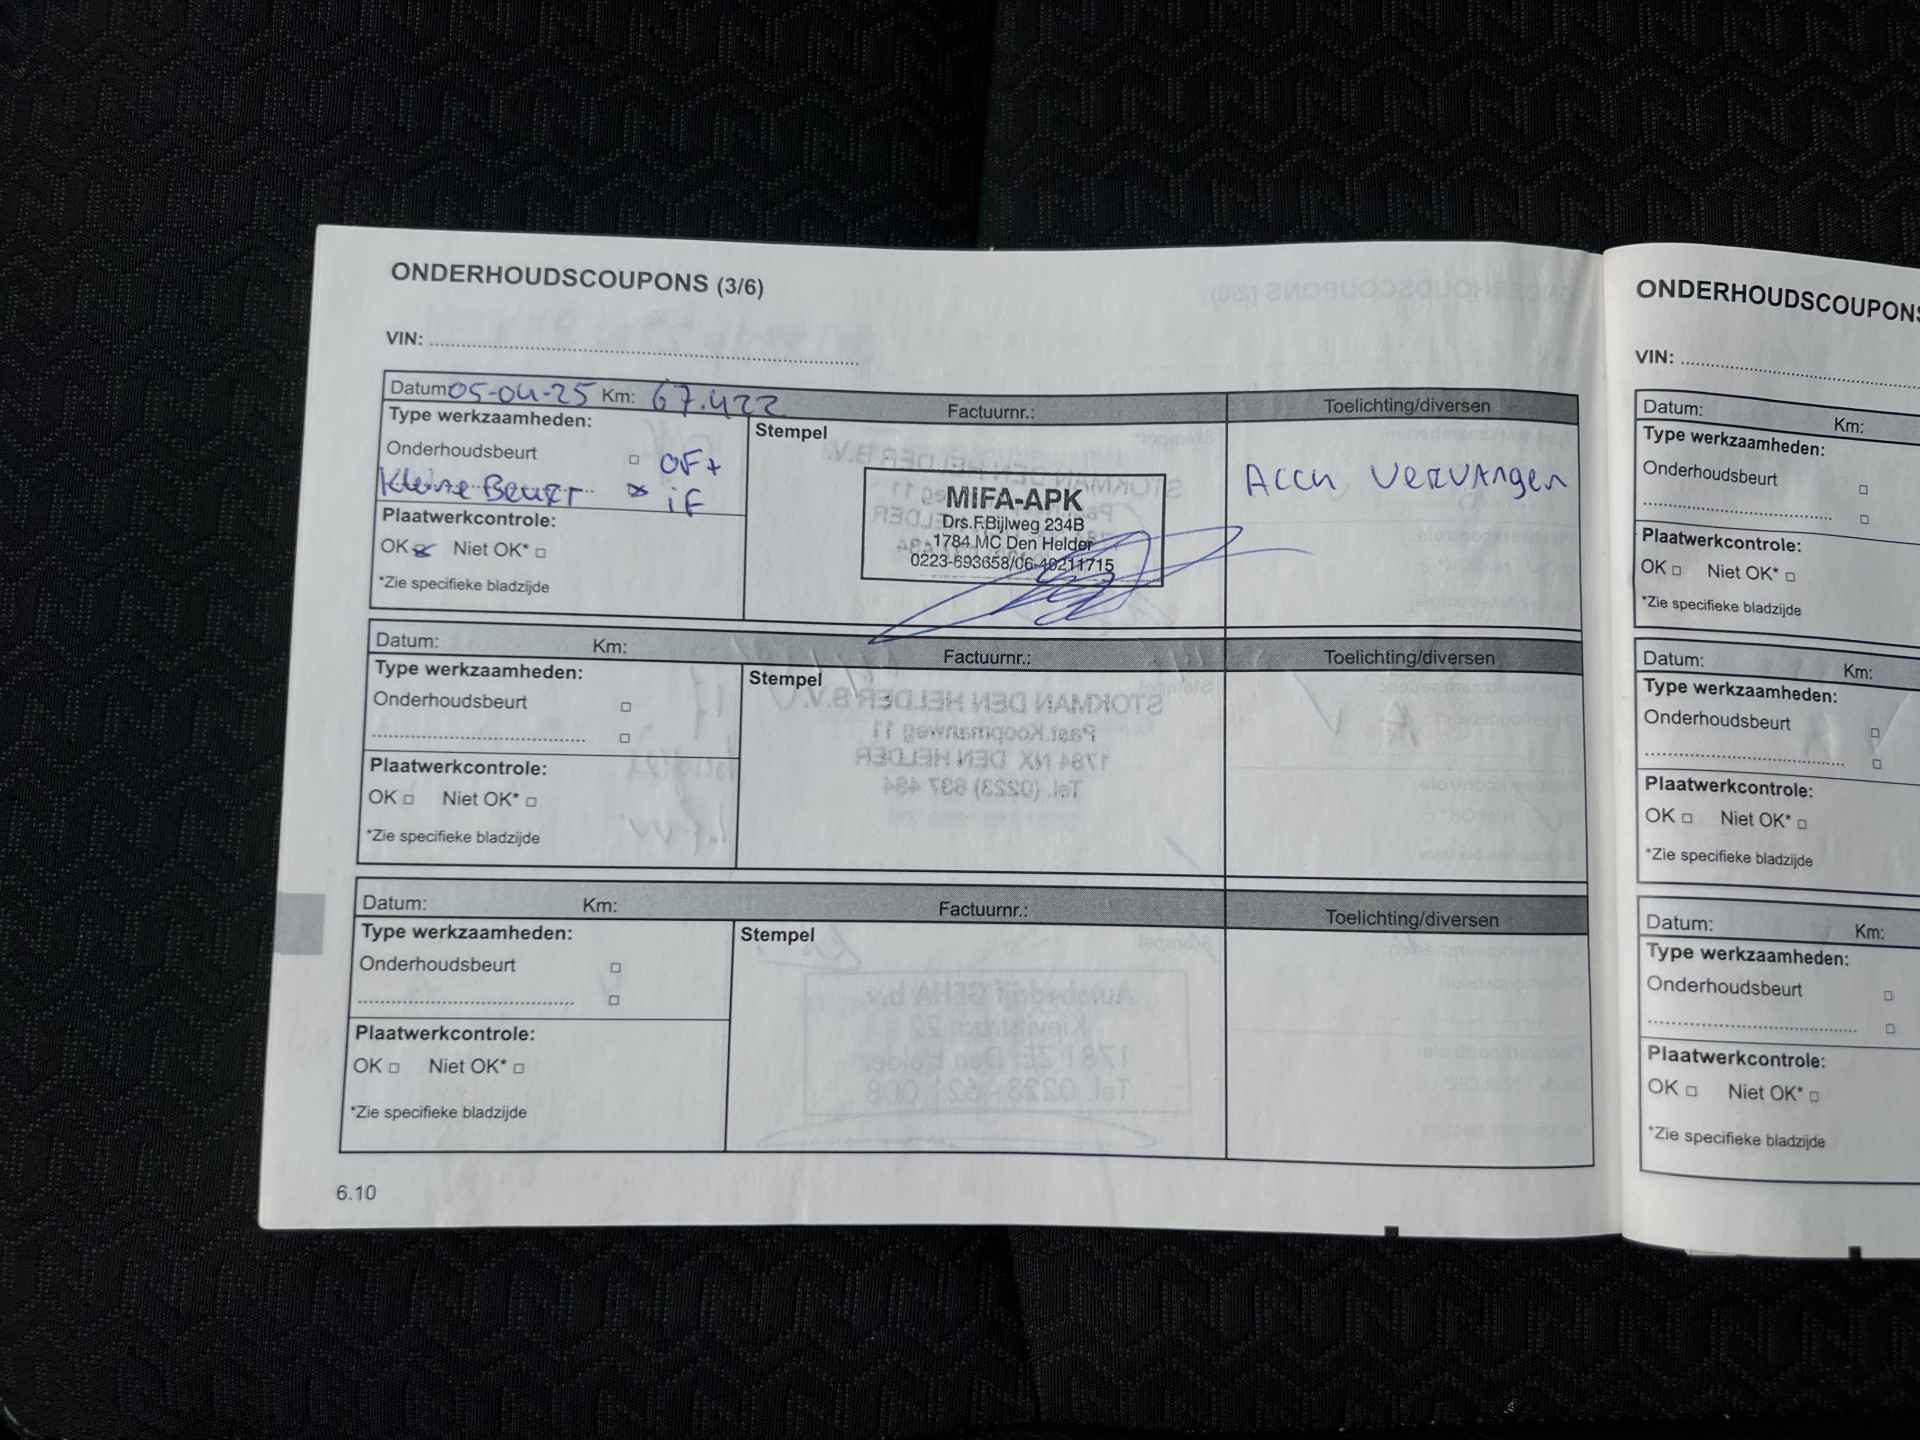 ONDERHOUDSCOUPONS (3/6)
VIN:
Datum: 05-04-25 Km: 67.422 Factuurnr.: Toelichting/diversen
Type werkzaamheden:
Stempel
Onderhoudsbeurt □ OF+
Kleine Beurt ☒ iF
MIFA-APK
Drs.F.Bijlweg 234B
1784 MC Den Helder
0223-693658/06-40211715
Accu vervangen
Plaatwerkcontrole:
OK ☒ Niet OK* □
*Zie specifieke bladzijde
Datum: Km: Factuurnr.: Toelichting/diversen
Type werkzaamheden:
Stempel
Onderhoudsbeurt □
□
Plaatwerkcontrole:
OK □ Niet OK* □
*Zie specifieke bladzijde
STOKMAN DEN HELDER B.V.
Past.Koopmanweg 11
1784 NX DEN HELDER
Tel. (0223) 637 484
Datum: Km: Factuurnr.: Toelichting/diversen
Type werkzaamheden:
Stempel
Onderhoudsbeurt □
□
Plaatwerkcontrole:
OK □ Niet OK* □
*Zie specifieke bladzijde
Autobedrijf GEHA b.v.
6.10
ONDERHOUDSCOUPONS
VIN:
Datum: Km:
Type werkzaamheden:
Onderhoudsbeurt □
□
Plaatwerkcontrole:
OK □ Niet OK* □
*Zie specifieke bladzijde
Datum: Km:
Type werkzaamheden:
Onderhoudsbeurt □
□
Plaatwerkcontrole:
OK □ Niet OK* □
*Zie specifieke bladzijde
Datum: Km:
Type werkzaamheden:
Onderhoudsbeurt □
□
Plaatwerkcontrole:
OK □ Niet OK* □
*Zie specifieke bladzijde